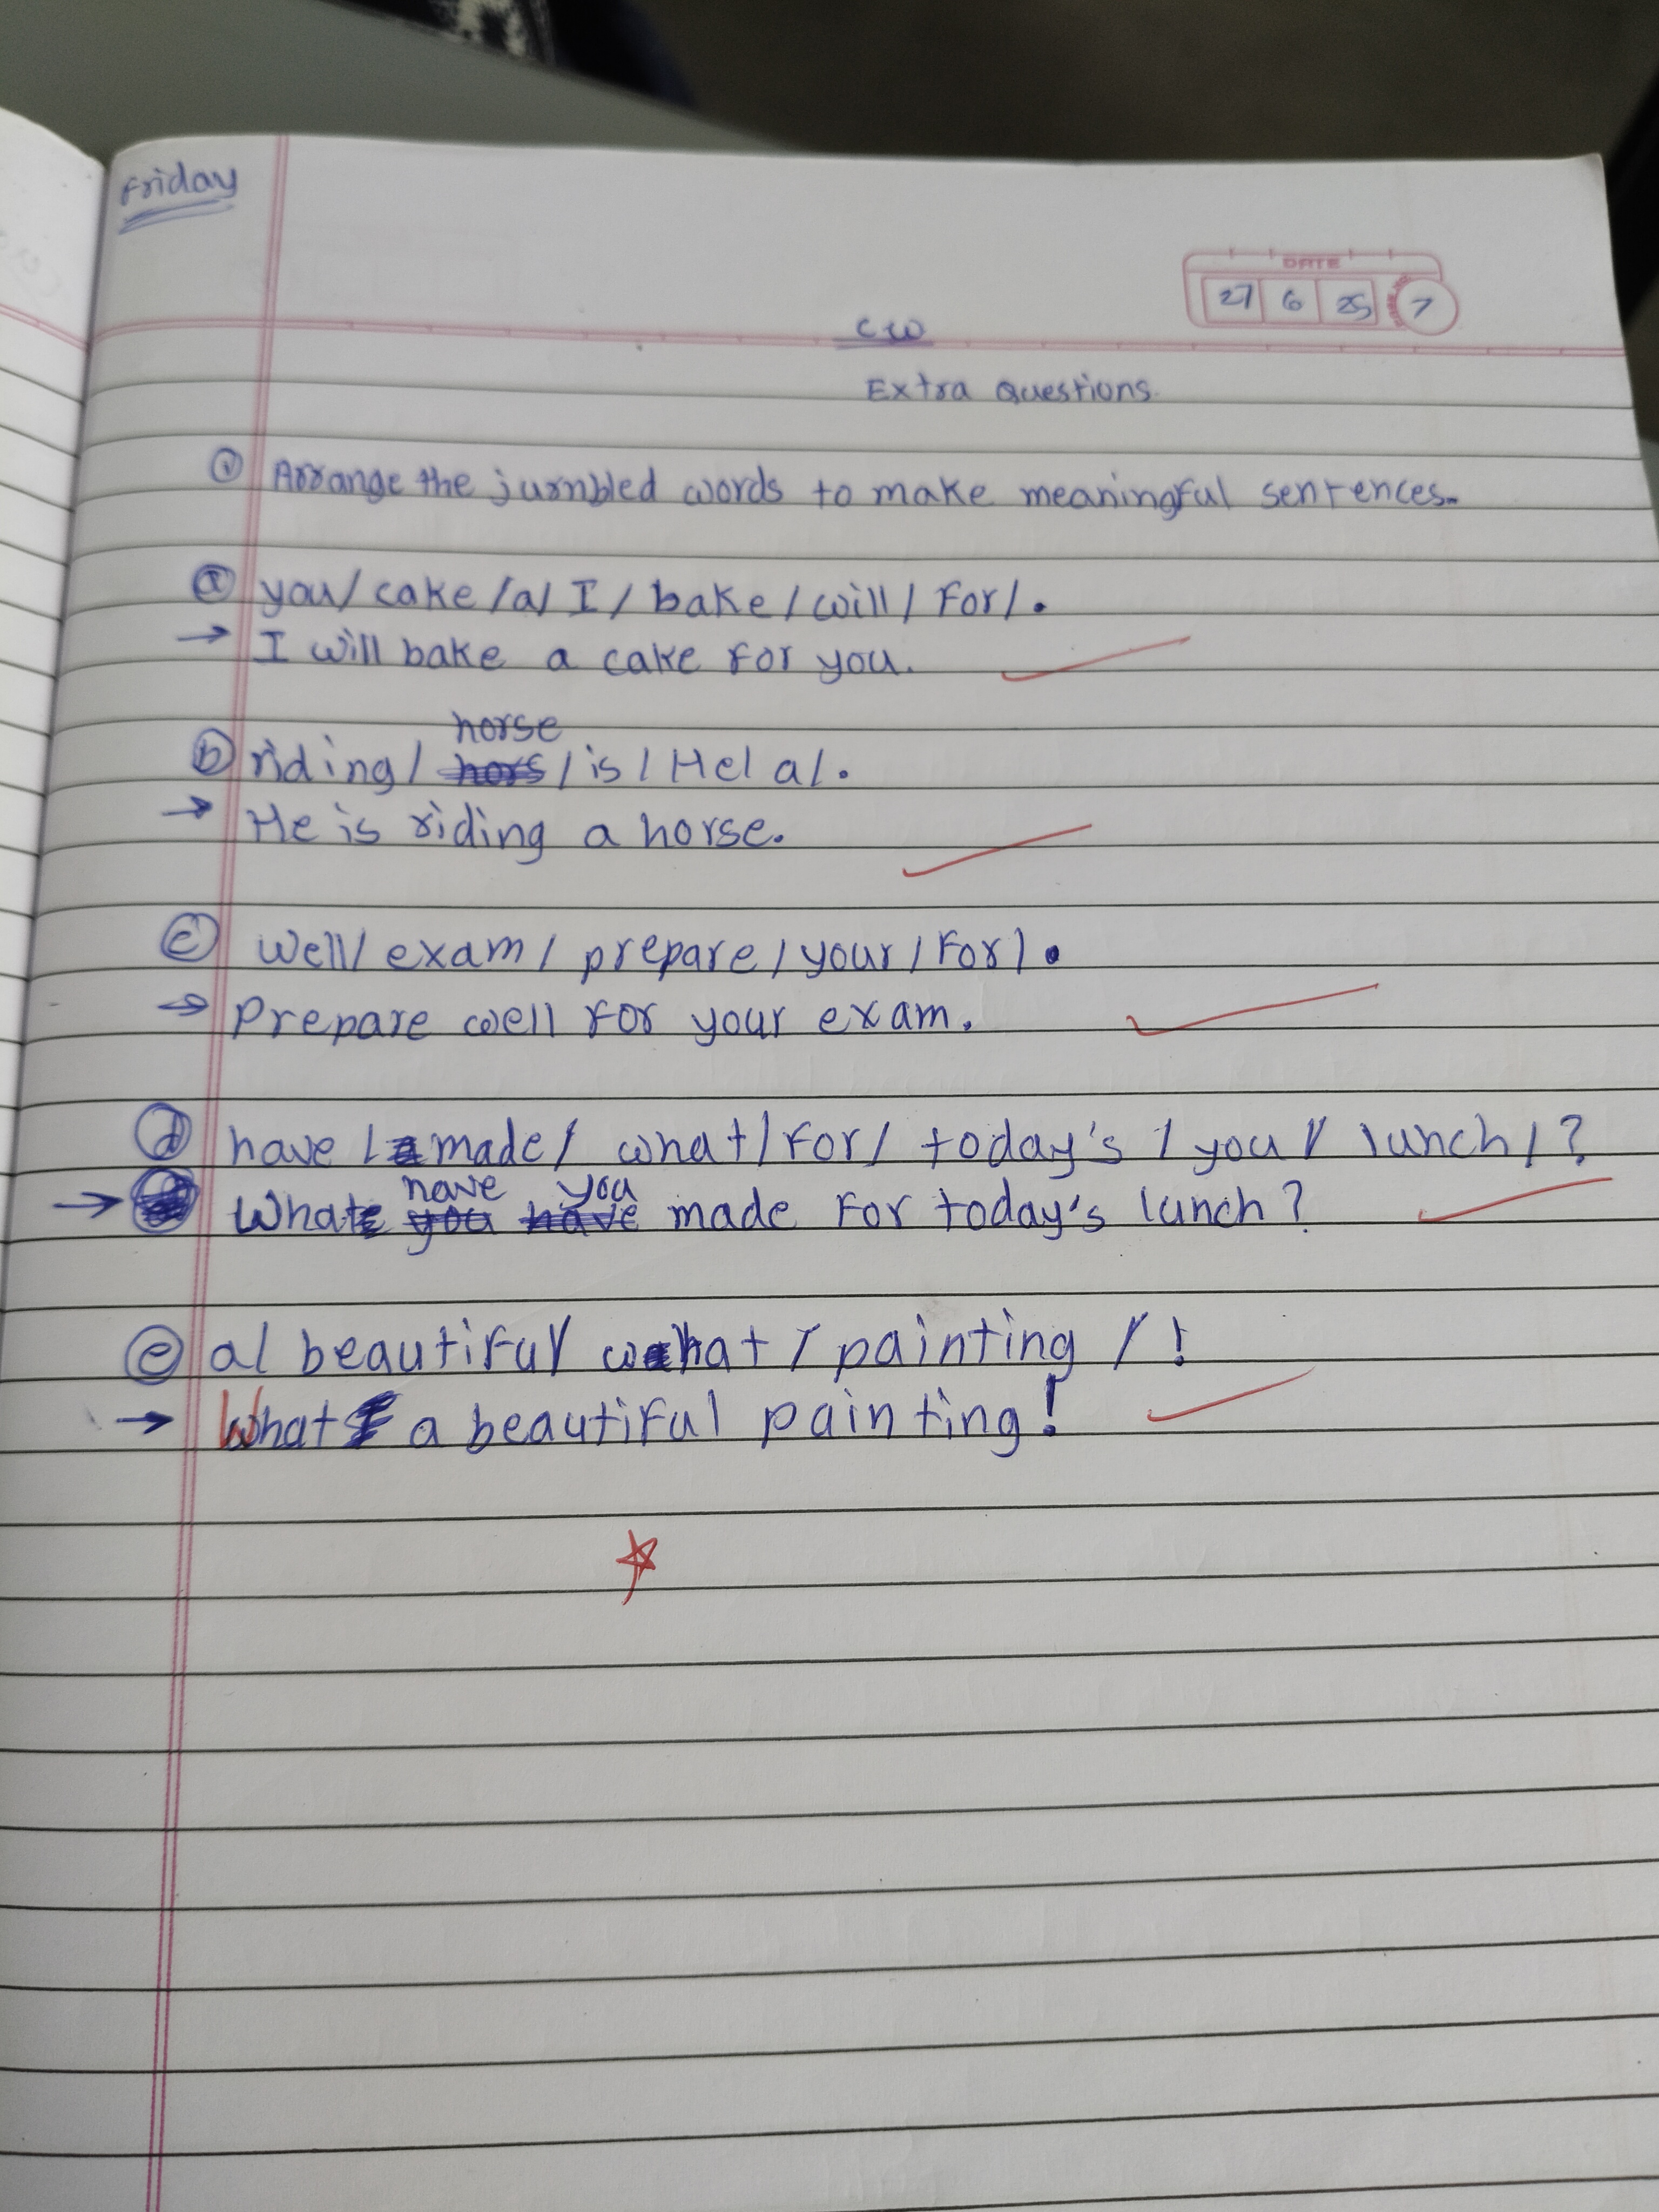 Friday
DATE
27 6 25 7
CW
Extra Questions.
① Arrange the jumbled words to make meaningful sentences.
ⓐ you/ cake /a/ I / bake / will / For/.
→ I will bake a cake for you.
horse
ⓑ riding / hors / is / He/ a/.
→ He is riding a horse.
ⓒ well/ exam / prepare / your / For / .
→ Prepare well for your exam.
ⓓ have / made / what / For / today's / you / lunch / ?
have you
→ What you have made For today's lunch?
ⓔ a/ beautiful/ what / painting / !
→ What a beautiful painting!